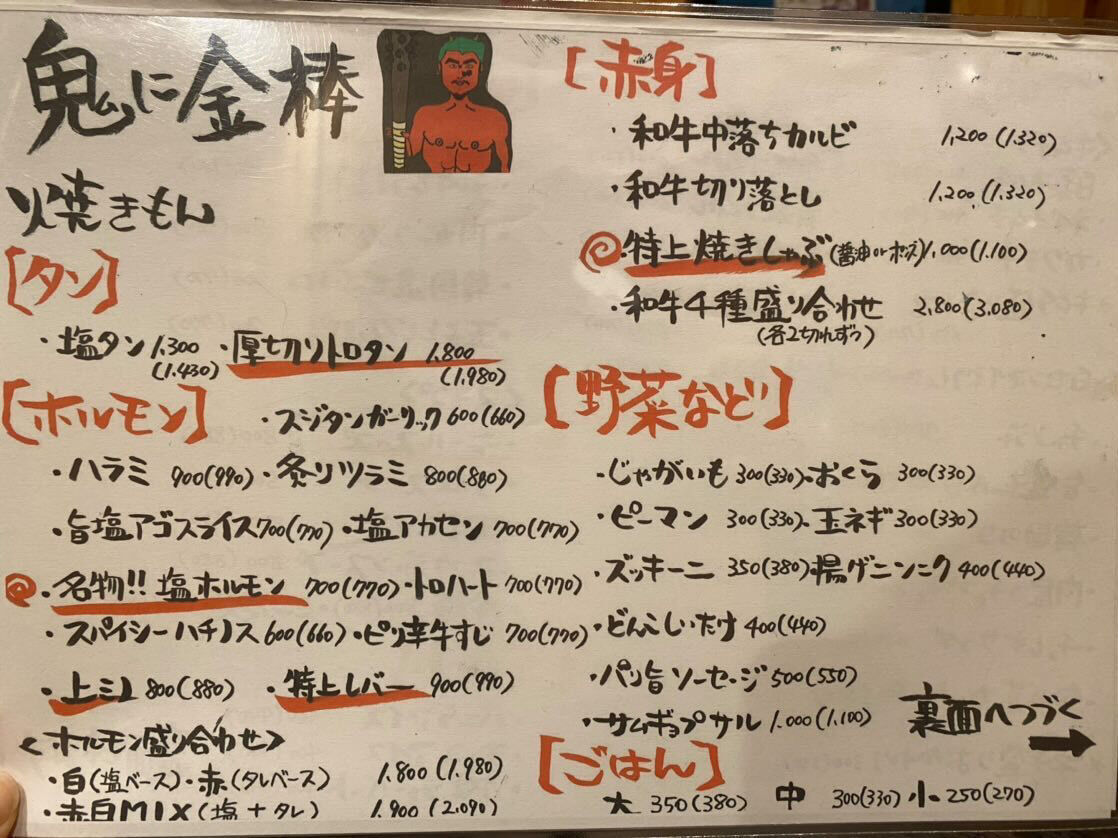 鬼に金棒
焼きもん
[タン]
・塩タン 1,300 (1,430) ・厚切りトロタン 1,800 (1,980)
[ホルモン] ・スジタンガーリック 600(660)
・ハラミ 900(990) ・炙りツラミ 800(880)
・旨塩アゴスライス 700(770) ・塩アカセン 700(770)
・名物!! 塩ホルモン 700(770) ・トロハート 700(770)
・スパイシーハチノス 600(660) ・ピリ辛牛すじ 700(770)
・上ミノ 800(880) ・特上レバー 900(990)
<ホルモン盛り合わせ>
・白(塩ベース)・赤(タレベース) 1,800(1,980)
・赤白MIX(塩+タレ) 1,900(2,090)
[赤身]
・和牛中落ちカルビ 1,200(1,320)
・和牛切り落とし 1,200(1,320)
・特上焼きしゃぶ(醤油orポン酢) 1,000(1,100)
・和牛4種盛り合わせ 2,800(3,080)
(各2切れずつ)
[野菜など]
・じゃがいも 300(330) ・おくら 300(330)
・ピーマン 300(330) ・玉ネギ 300(330)
・ズッキーニ 350(380) 揚げニンニク 400(440)
・どんこしいたけ 400(440)
・パリ旨ソーセージ 500(550)
・サムギョプサル 1,000(1,100)
裏面へつづく→
[ごはん]
大 350(380) 中 300(330) 小 250(270)